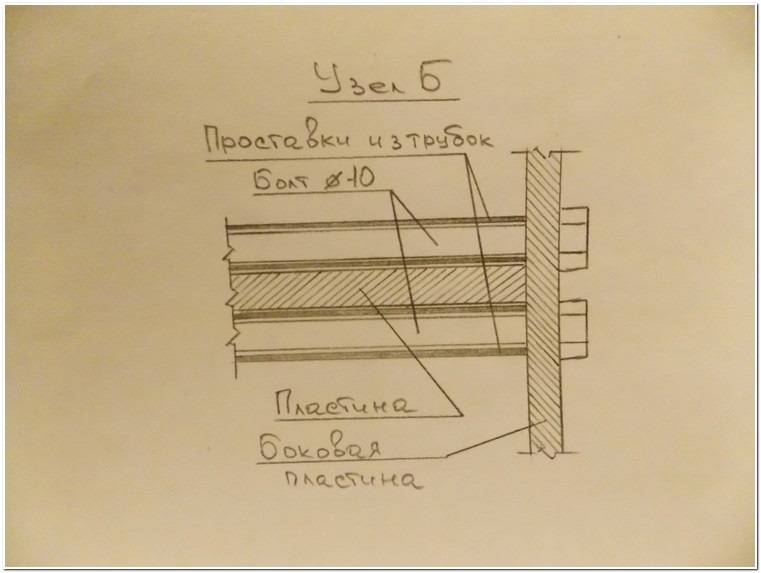 Узел Б
Проставки из трубок
Болт ⌀10
Пластина
Боковая
пластина